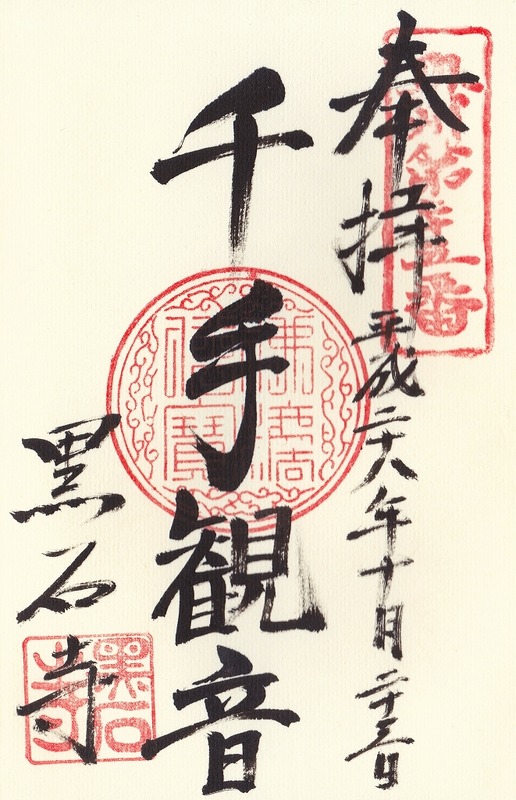 奉拝
平成二十八年十月二十三日
千手観音
佛法僧寶
黒石寺
黒石寺